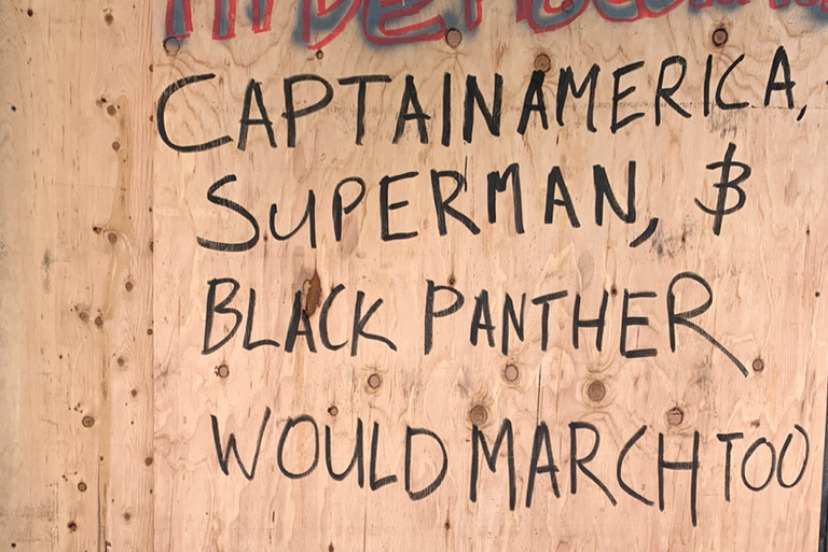 CAPTAIN AMERICA,
SUPERMAN, &
BLACK PANTHER
WOULD MARCH TOO